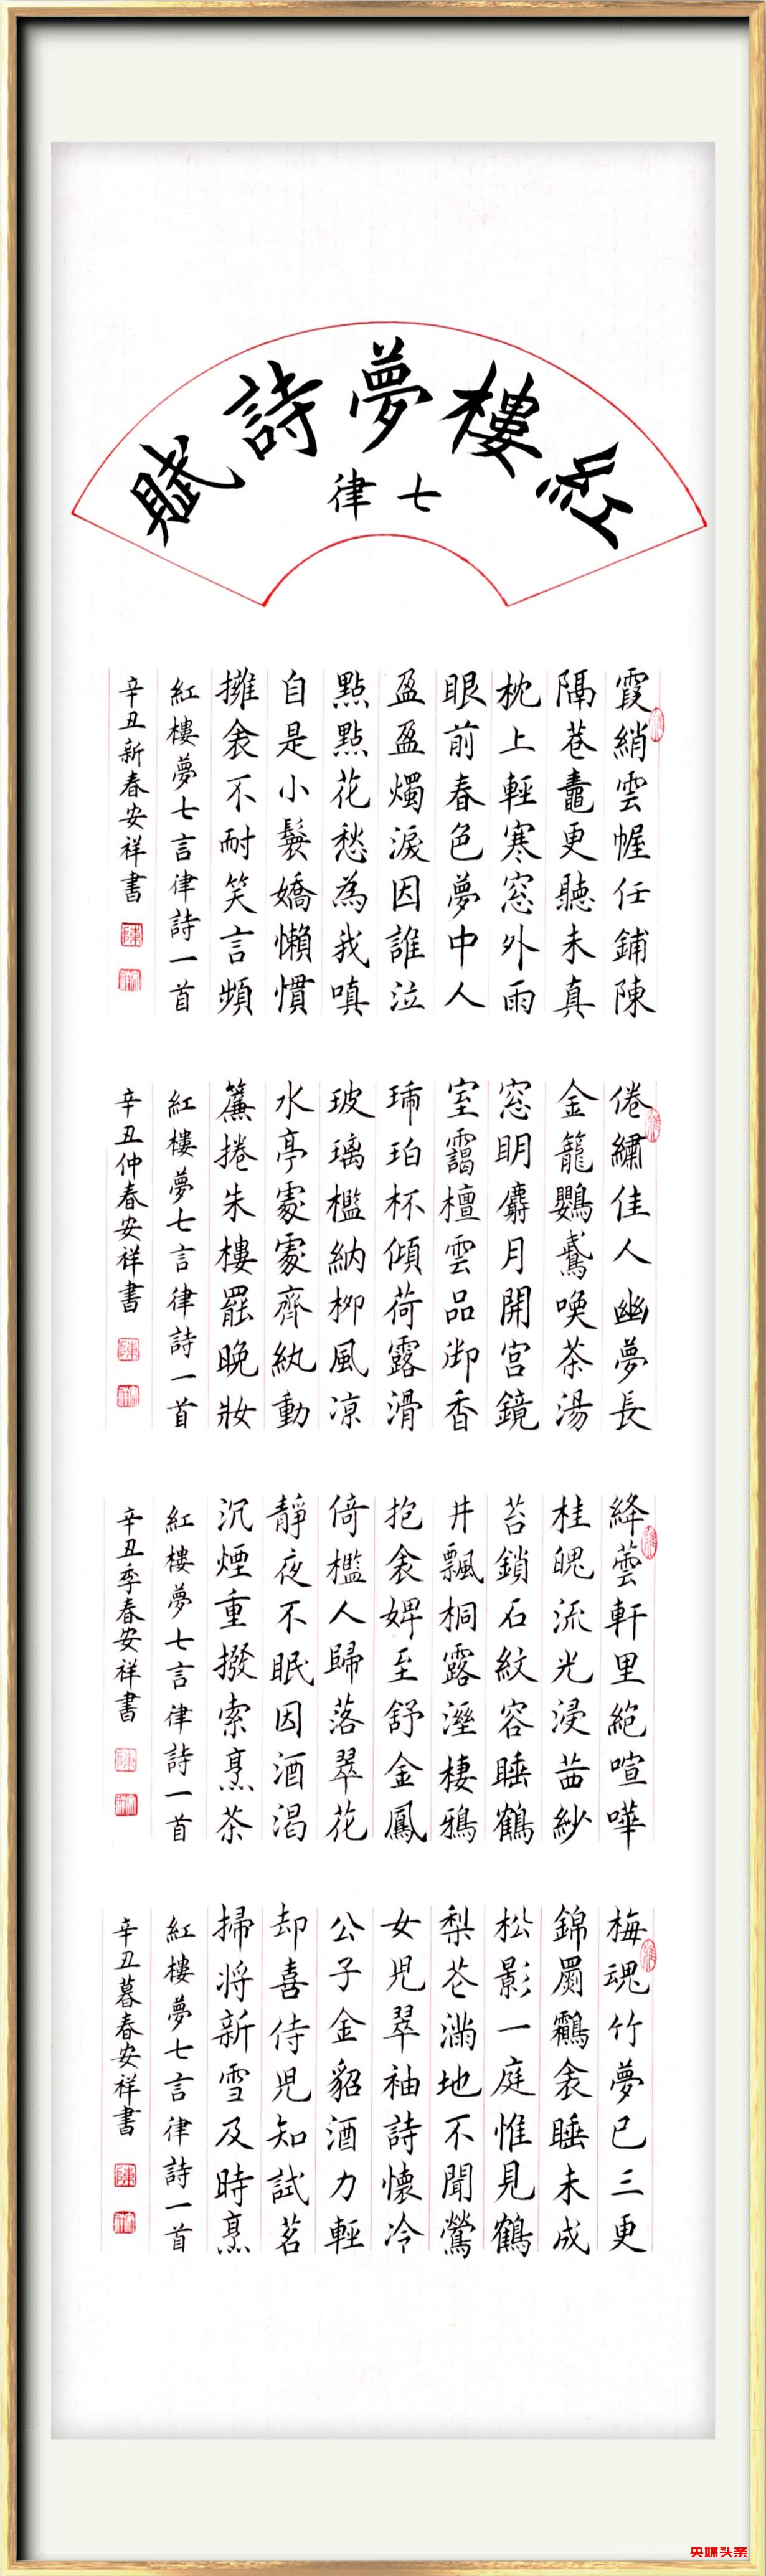 紅樓夢詩賦
七律
霞綃雲幄任鋪陳
隔巷更聽未真
枕上輕寒窓外雨
眼前春色夢中人
盈盈燭淚因誰泣
點點花愁為我嗔
自是小鬟嬌懶慣
擁衾不耐笑言頻
紅樓夢七言律詩一首
辛丑新春安祥書
倦繡佳人幽夢長
金籠鸚鵡喚茶湯
窓明麝月開宮鏡
室靄檀雲品御香
琥珀杯傾荷露滑
玻璃檻納柳風凉
水亭處處齊紈動
簾捲朱樓罷晚妝
紅樓夢七言律詩一首
辛丑仲春安祥書
絳蕓軒里絕喧嘩
桂魄流光浸茜紗
苔鎖石紋容睡鶴
井飄桐露溼棲鴉
抱衾婢至舒金鳳
倚檻人歸落翠花
靜夜不眠因酒渴
沉煙重撥索烹茶
紅樓夢七言律詩一首
辛丑季春安祥書
梅魂竹夢已三更
錦罽鸘衾睡未成
松影一庭惟見鶴
梨花滿地不聞鶯
女兒翠袖詩懷冷
公子金貂酒力輕
却喜侍兒知試茗
掃將新雪及時烹
紅樓夢七言律詩一首
辛丑暮春安祥書
央媒头条